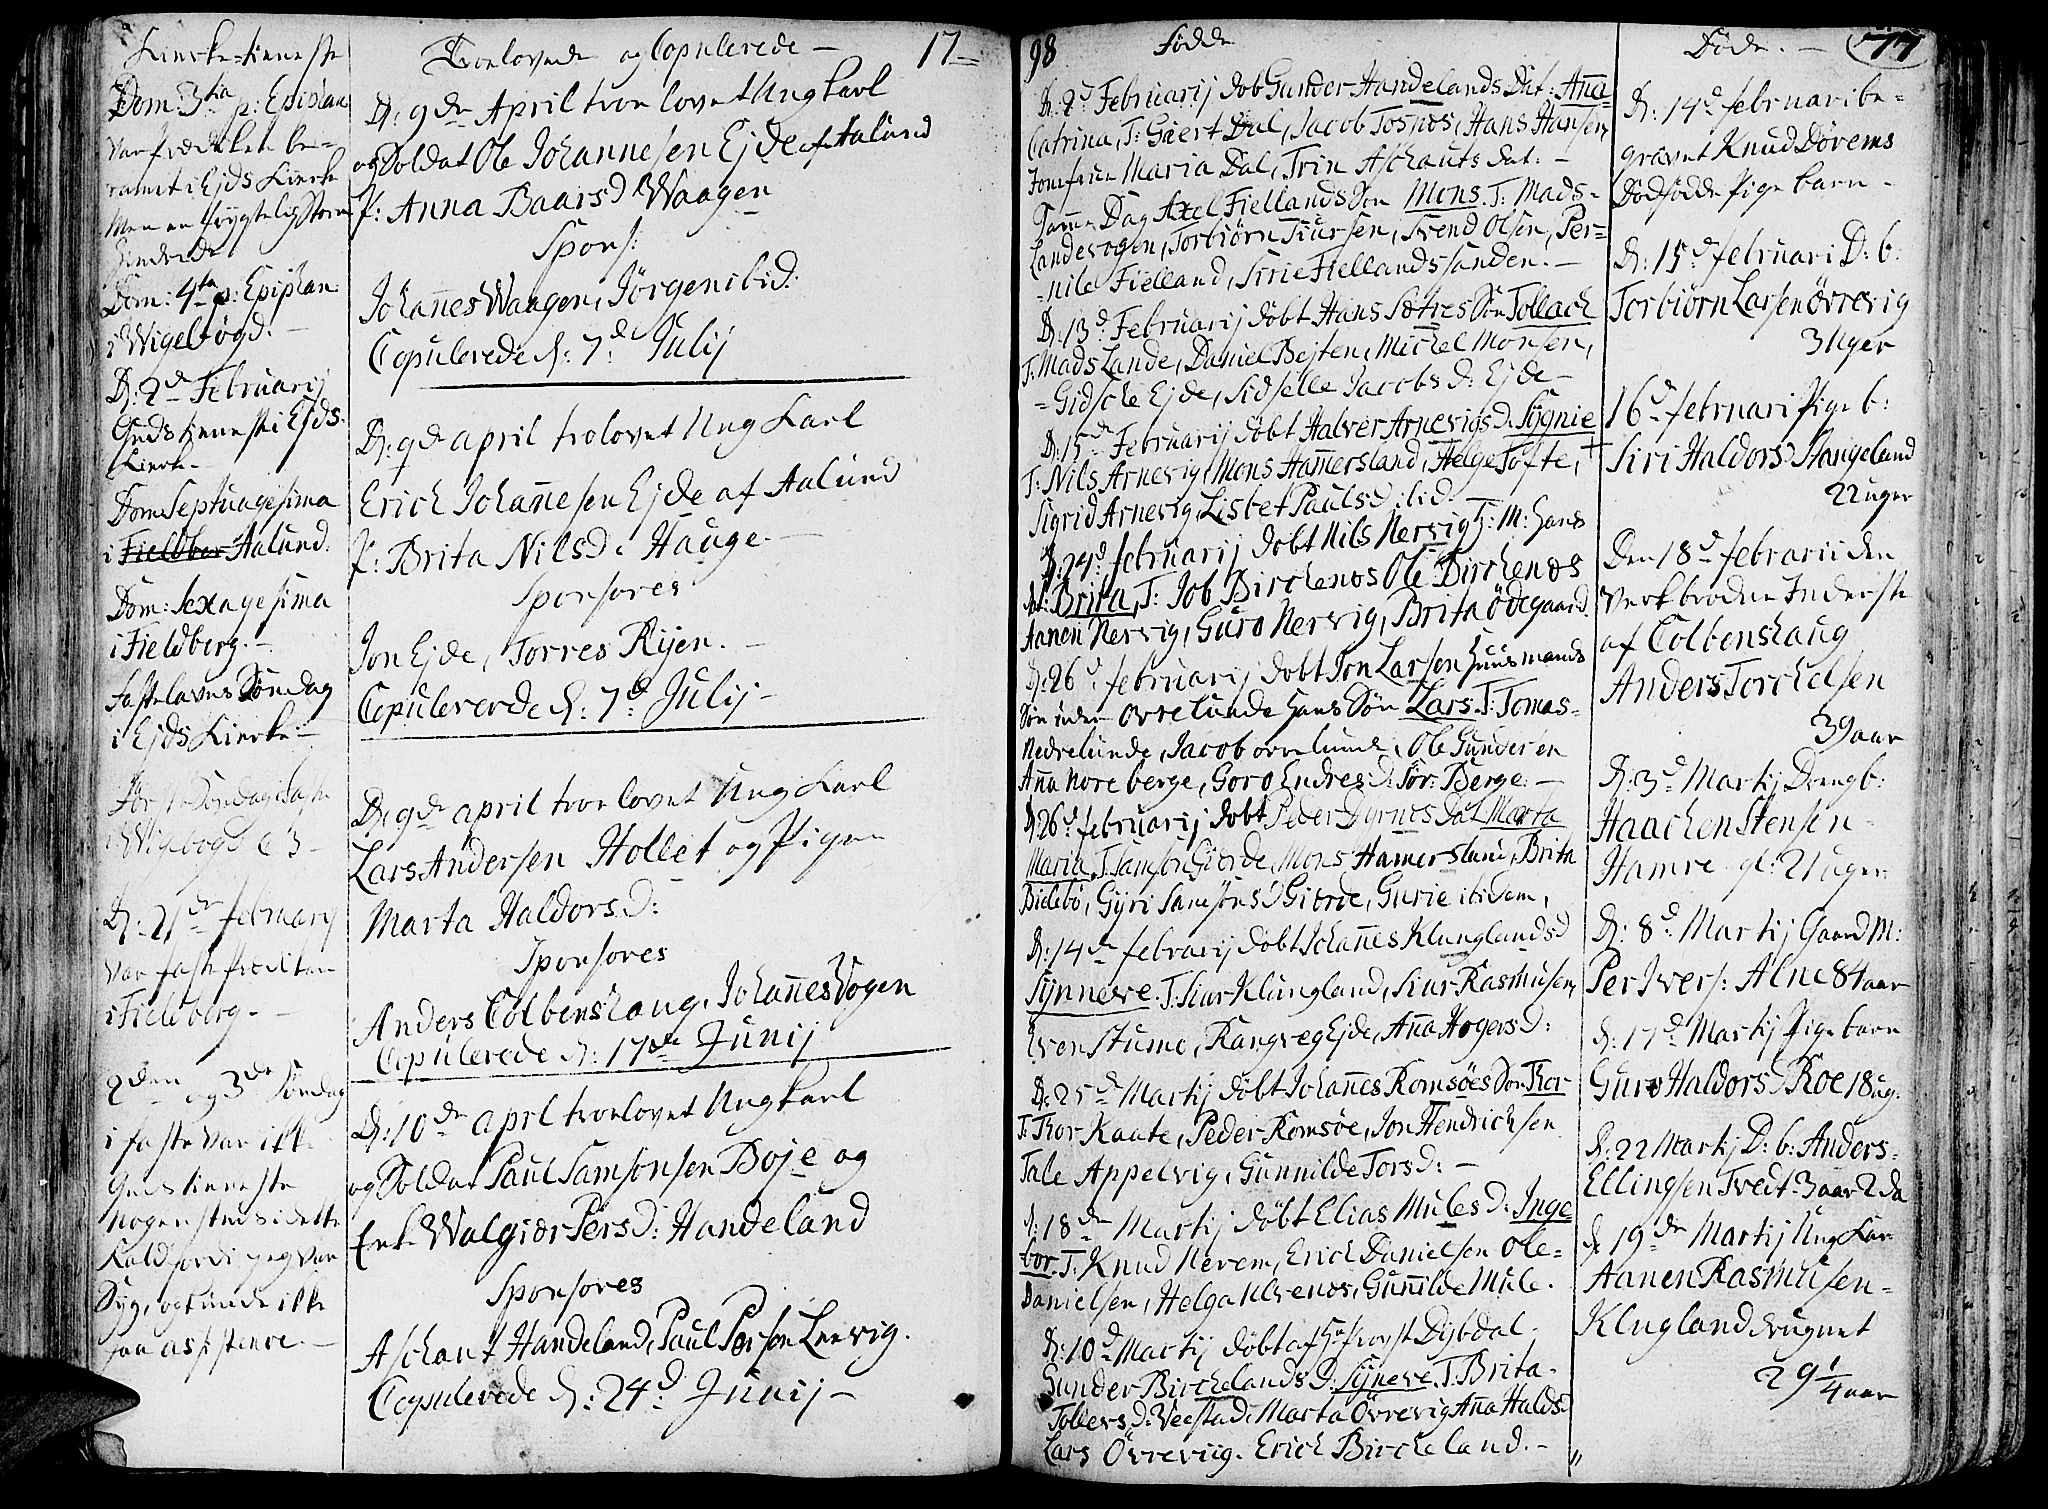 Kierke-tieneste
Dom: 3tia p: Epiphan
var Prædiken be-
ramt i Ejds Kierke
Men en frygtelig storm
hindrede
Dom: 4ta p: Epiphan:
i Wigebøgd. -
D: 2d Februarij
Guds tieneste i Ejds
Kierke -
Dom: Septuagesima
i Fieldber Aalund.
Dom: Sexagesima
i Fieldberg. -
Fastelavns Søndag
i Ejds Kierke -
Første Søndag i Faste
i Wigebøgd
D: 21de februarij
var faste prædiken
i Fieldberg. -
2den og 3de Søndag
i faste var ikke
Guds tieneste
Nogensteds i dette
Kald fordi jeg var
Syg, og kunde ikke
faa assistence. -
Troelovede og Copulerede - 17-
D: 9de April troelovet Ungkarl
og Soldat Ole Johannesen Ejde af Aalund
P: Anna Baars D Waagen
Spons:
Johannes Waagen, Jørgen ibid:
Copulerede d: 7de Julij
D: 9de april trolovet Ung Karl
Erich Johannesen Ejde af Aalund
P: Brita Nils D: Hauge. -
Sponsores
Jon Ejde, Torres Rijen. -
Copulerede d: 7d Julij -
D: 9de april troelovet Ung Karl
Lars Andersen Hollet og Pigen
Marta Haldors D:
Sponsores
Anders Colbenshaug, Johannes Vogen
Copulerede d: 17de Junij
D: 10de aprl troelovet Ungkarl
og Soldat Paul Samsonsen Boje og
Enke Walgier Pers D: Handeland
Sponsores
Aschaut Handeland, Paul Person Leevig.
Copulerede d: 24d Junij -
98 Fødde
D: 2d Februarij dob Gunder Handelands Dat: Anna
Catrina, T: Gäert Dal, Jacob Tosnos, Hans Hansen,
Jomfrue Maria Dal, Trin Aschauts dat: -
Samme Dag Axel Fiellands Søn Mons. T: Mads-
Landevogen, Torbiørn Siursen, Svend Olsen, Per-
-nile Fielland, Sirie Fiellandssanden. -
D: 13d Februarij døbt Hans Sætres Søn Tollach
T: Mads Lande, Daniel Bejten, Michel Monsen,
-Gidsche Ejde, Sidselle Jacobs D: Ejde -
D: 15de Februarij døbt Halver Arnevigs D: Sygnie
T: Nils Arnevig, Mons Hammersland, Helge Tofte, +
Sigrid Arnevig, Lisbet Pauls D: ibid. -
D: 24d februarij døbt Nils Nervig T: M: hans
dat: Brita, T: Job Birchenos Ole Birchenos
Aanen Nervig, Guro Nervig, Brita Ødegaard.
D: 26d februarij døbt Jon Larsen huusmands
Søn under Øvrelunde hans Søn Lars. T: Tomas-
Nedrelunde, Jacob ovrelund, Ole Gundersen
Anna Noreberge, Goro Endres D: Sør: Berge. -
D: 26d februarij døbt Peder Dyrnes Dat Marta
Maria T: Samson Giørde, Mons Hamersland, Brita
Bielebø, Gyri Samsons D Giørde, Gurie ibidem,
D: 14de febrarij døbt Johannes Klunglands D
Synneve. T: Siur Klungland, Siur Rasmusen,
Even Stumo, Rangveg Ejde, Anna Hogers D:
D: 25d Martij døbt Johannes Romsøes Søn Thor
T: Thor Kaate, Peder Romsøe, Jon Hendrichsen
Tale Appelvig, Gunnilde Tors D: -
d: 18de Martij døbt Elias Mules D: Inge
bor. T: Knud Nevem, Erich Danielsen Ole-
Danielsen, Helga Ulvenos, Gunnilde Mule.
D: 10d Martij døbt af Hr Provst Dijbdal.
Gunder Birchelands D: Synneve. T: Brita-
Tollers D: Veestad, Marta Øvrevig Anna Halds D
Lars Øvreviig. Erich Bircheland. -
Døde. - 77
D: 14d februari be-
gravet Knud Dørems
Dødfødde Pige barn -
D: 15d februari D: b:
Torbiørn Larsen Øvrevig
3 Uger
16d februari Pige b:
Siri Haldors D Stangeland
22 uger
Den 18d febrarii den
verkbrødne Inderste
af Colbenshaug
Anders Torchelsen
39 aar
D: 3d Martij Drengb:
Haachen Stensen
Hamre gl: 21 uger
D: 8d Martij Gaard M:
Per Ivers: Alne 84 aar
d: 17d Martij Pigebarn
Guro Haldors D Roe 18 ug.
d: 22 Martij D: b: Anders-
Ellingsen Tvedt 3 aar 2 da
d 19de Martij Ung Kar
Aanen Rasmusen-
Klugland drugnet
29 1/4 aar